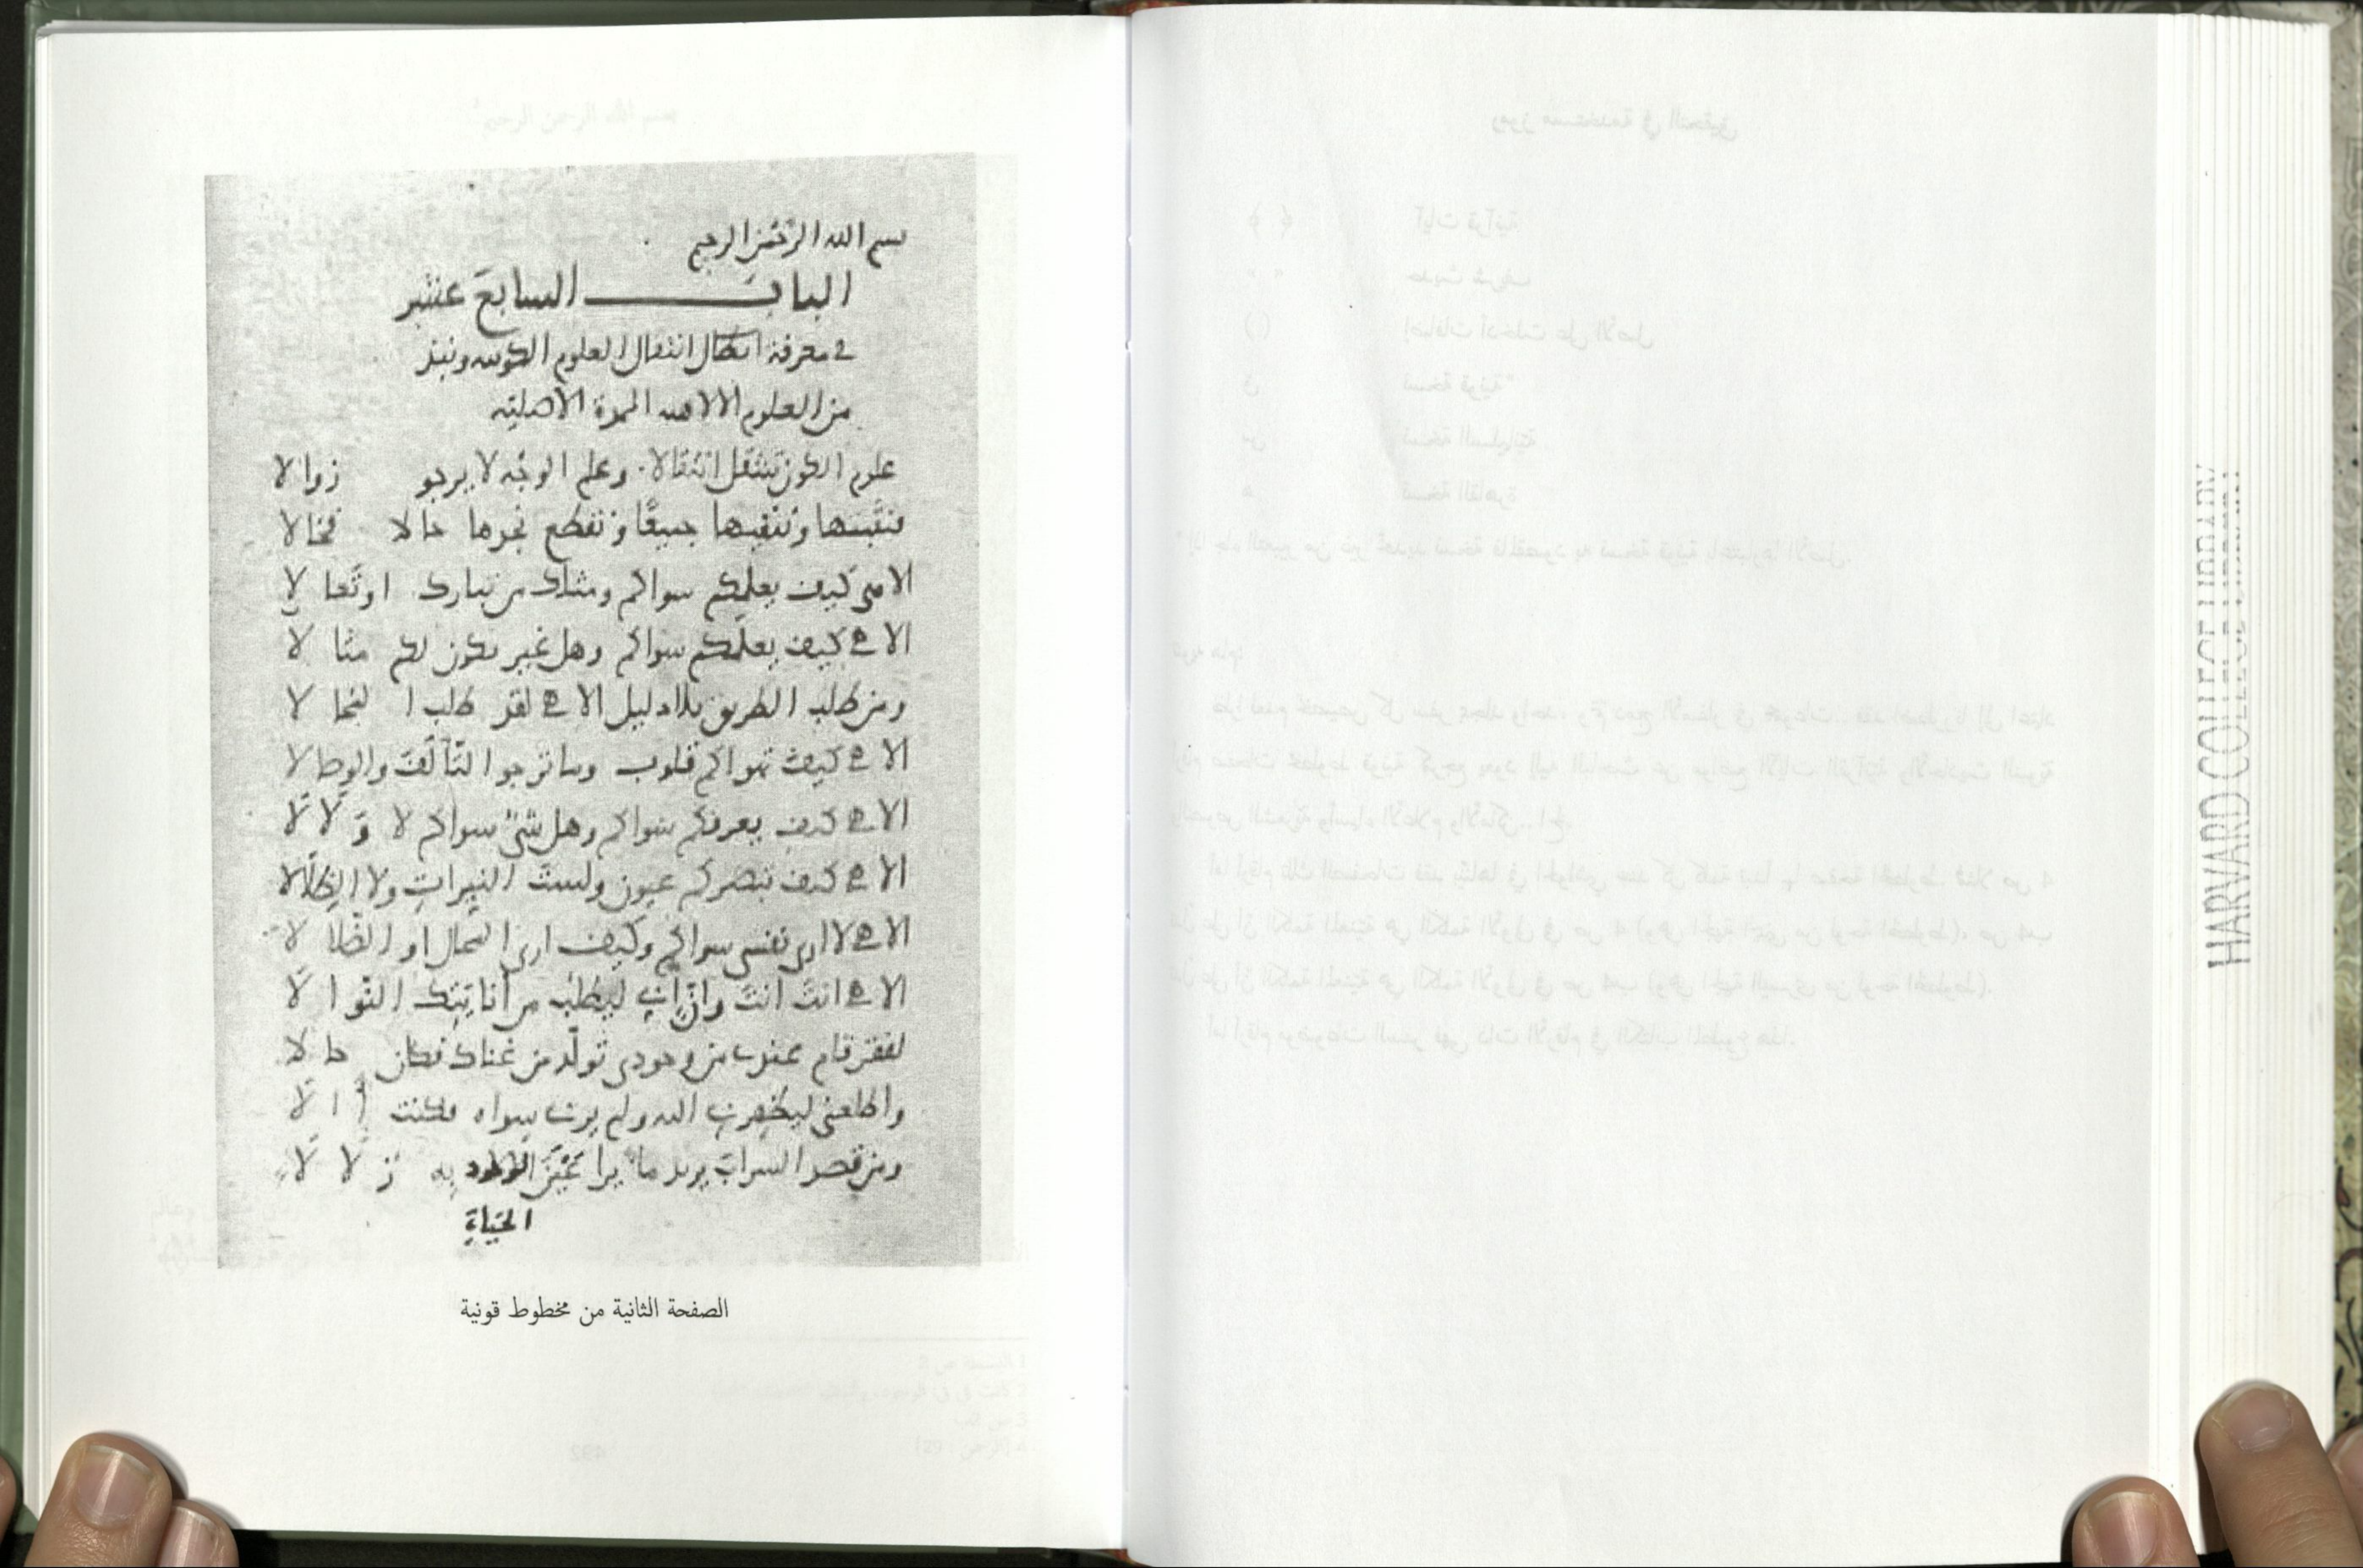 بسم الله الرحمن الرحيم
الباب السابع عشر
في معرفة انتقال العلوم الكونية ونبذ
من العلوم الالاهية الممدة الأصلية
علوم الكون تنتقل انتقالا وعلم الوجه لا يرجو زوالا
فنثبتها وننفيها جميعًا ونقطع نجدها حالا فحالا
الاهي كيف يعلمكم سواكم ومثلك من تبارك او تعالا
الاهي كيف يعلمكم سواكم وهل غير يكون لكم مثالا
ومن طلب الطريق بلا دليل الاهي لقد طلب المحالا
الاهي كيف تهواكم قلوب وما ترجوا التألف والوصالا
الاهي كيف يعرفكم سواكم وهل شيء سواكم لا ولا لا
الاهي كيف تبصركم عيون ولست النيرات ولا الظلالا
الاهي لا ارى نفسي سواكم وكيف ارى المحال او الضلالا
الاهي انت انت وان اني ليطلب من أنايتك النوالا
لفقر قام عندي من وجودي تولد من غناك فكان حالا
واطلعني ليظهرني اليه ولم يرني سواه فكنت أالا
ومن قصد السراب يريد ماء يرا عين الحياة به زلالا
الحياة
الصفحة الثانية من مخطوط قونية
HARVARD COLLEGE LIBRARY